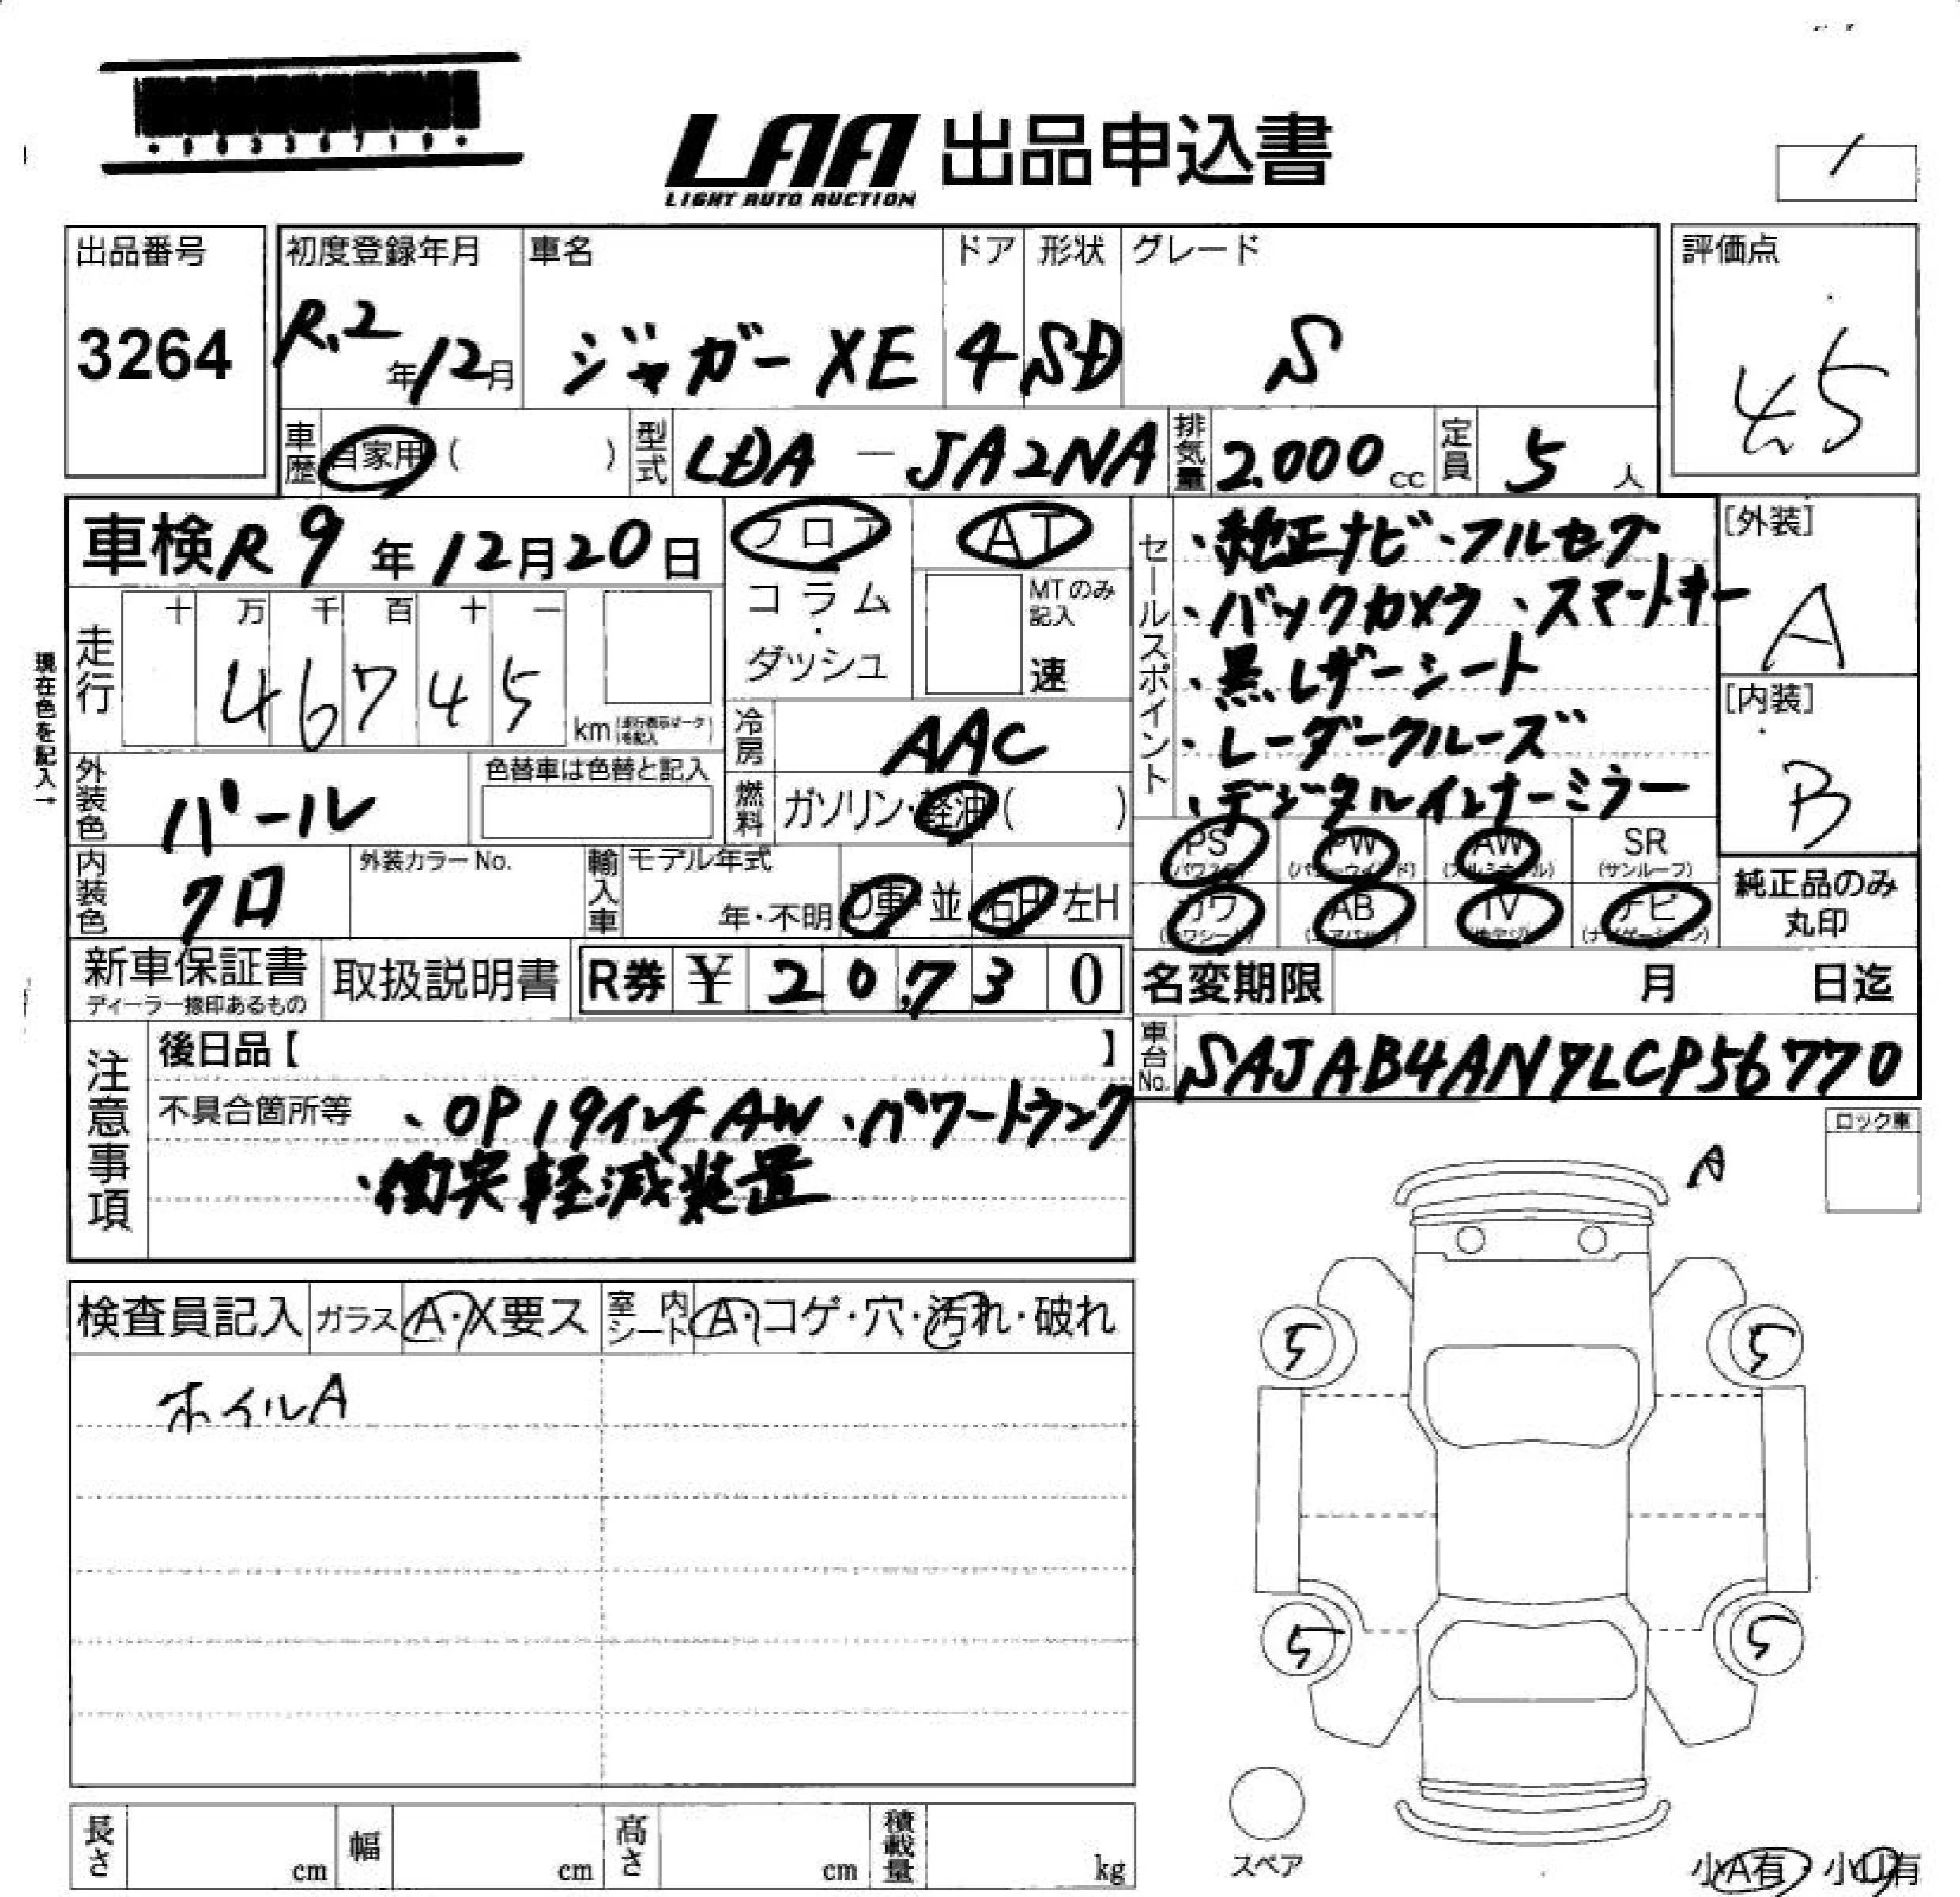 LAA 出品申込書
LIGHT AUTO AUCTION
出品番号 初度登録年月 車名 ドア 形状 グレード 評価点
3264 R.2年12月 ジャガー XE 4 SD S 4.5
車歴 自家用 ( ) 型式 LDA-JA2NA 排気量 2.000 cc 定員 5 人
車検 R9年12月20日 フロア AT
コラム・ダッシュ MTのみ記入 速
走行 十 万 千 百 十 一
46745 km
現在色を記入→
冷房 AAC
外装色 パール 色替車は色替と記入
燃料 ガソリン・軽油( )
内装色 クロ 外装カラーNo. 輸入車 モデル年式 年・不明 D車・並 右H 左H
セールスポイント
・純正ナビ・フルセグ
・バックカメラ・スマートキー
・黒レザーシート
・レーダークルーズ
・デジタルインナーミラー
[外装] A
[内装] B
PS (パワステ) PW (パワーウィンドウ) AW (アルミホイル) SR (サンルーフ)
カワ (カワシート) AB (エアバック) TV (地デジ) ナビ (ナビゲーション)
純正品のみ丸印
新車保証書 ディーラー捺印あるもの 取扱説明書 R券 ¥ 20,730 名変期限 月 日迄
車台No. SAJAB4AN7LCP56770
注意事項
後日品【 】
不具合箇所等 ・OP19インチAW ・パワートランク
・衝突軽減装置
ロック車
A
検査員記入 ガラス A・X要ス 室内シート A・コゲ・穴・汚れ・破れ
ホイルA
5 5
5 5
スペア
長さ cm 幅 cm 高さ cm 積載量 kg
小A有・小U有